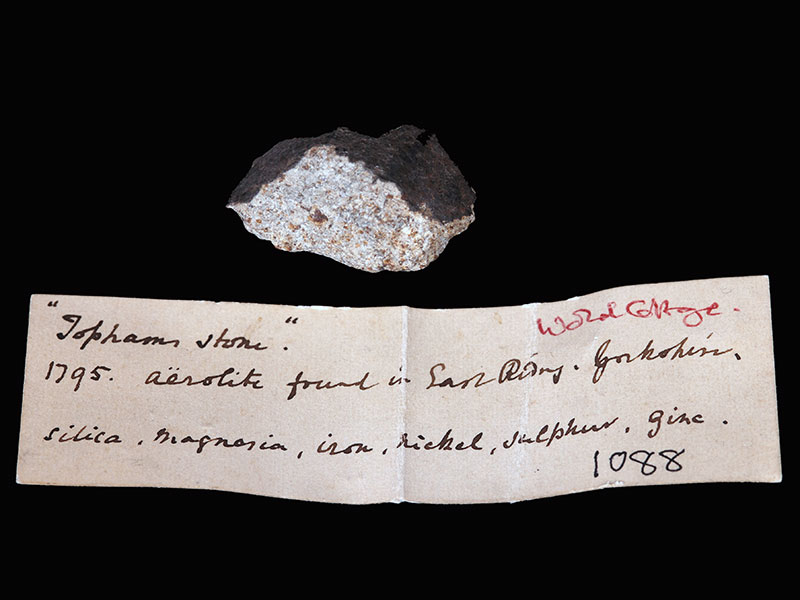 "Tophams stone."
Wold Cottage.
1795. aërolite found in East Riding. Yorkshire.
silica, magnesia, iron, nickel, sulphur, zinc.
1088